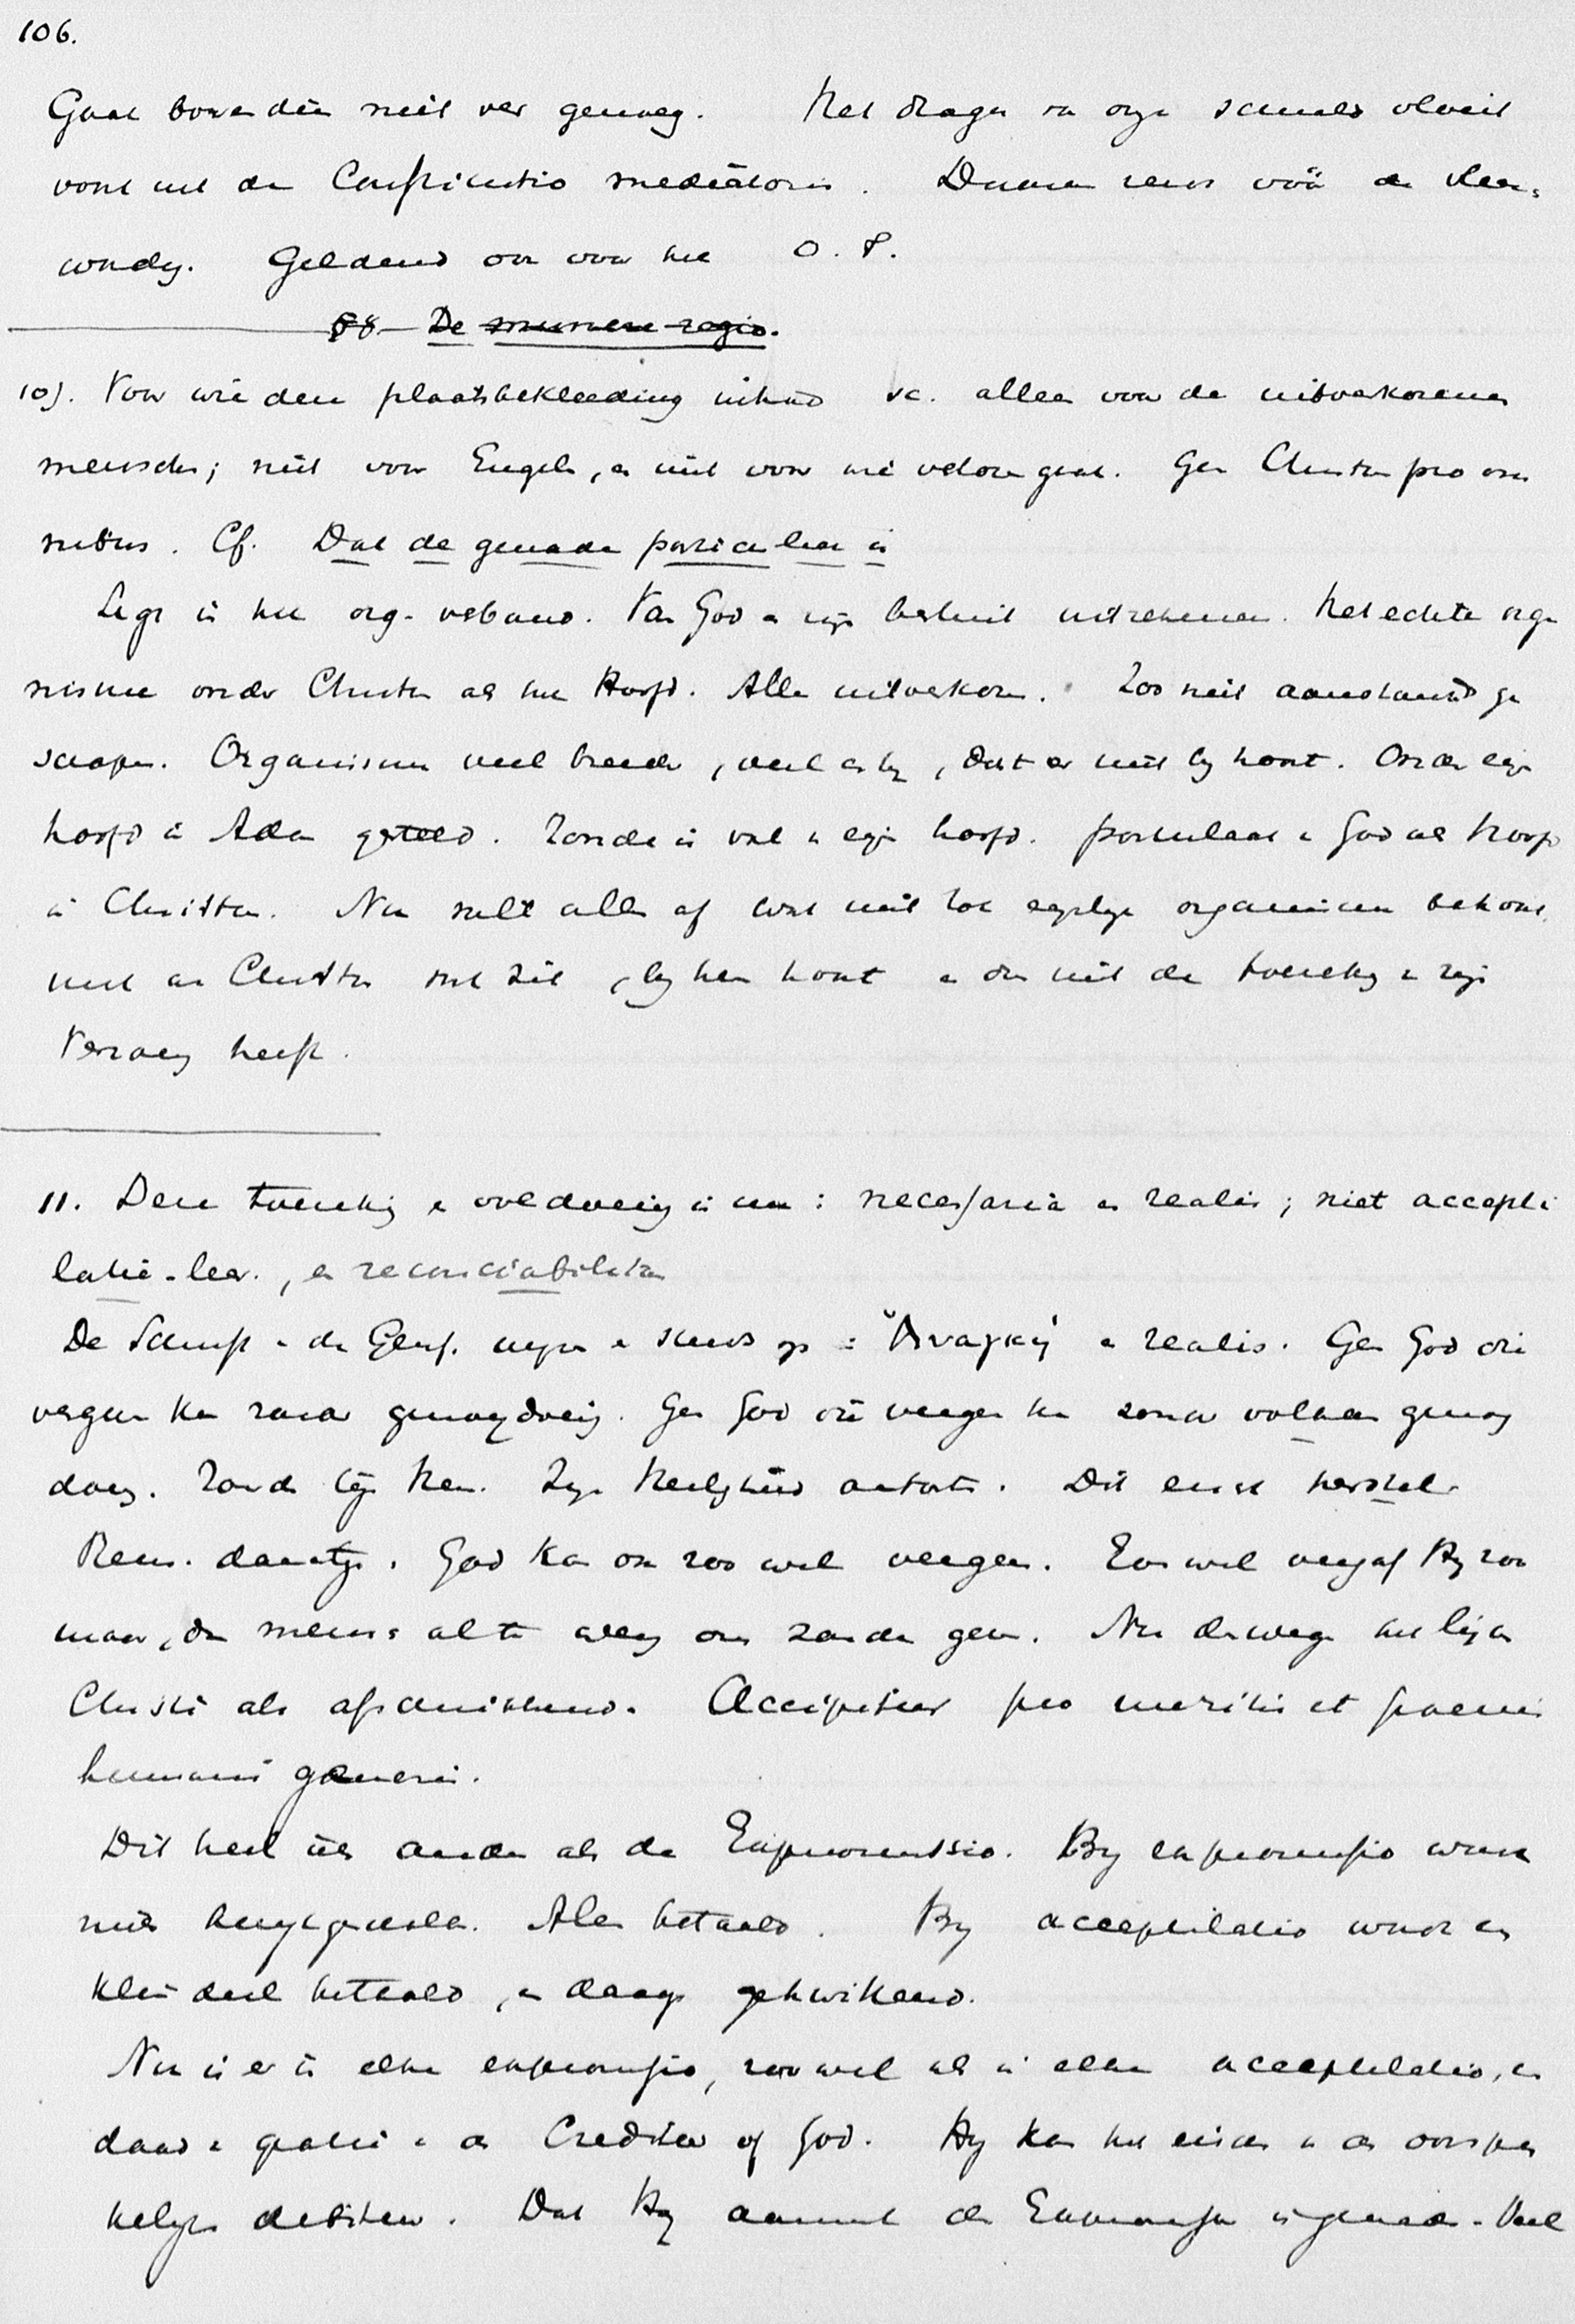 106.
Gaat bovendien niet ver genoeg. Het dragen van onze schuld vloeit
voort uit de Constitutio mediatoris. Daarom reeds vóór de vlees-
wording. Geldend ook voor het O. T.
§8 De munere regio.
10). Voor wie deze plaatsbekleeding sc. alleen voor de uitverkorenen
menschen; niet voor Engelen, en niet voor wie verloren gaat. Geen Christus pro om
nibus. Cf. Dat de genade particulier is
Ligt in het org. verband. Van God en zijn besluit uitrekenen. Het echte orga
nisme onder Christus als het Hoofd. Alle uitverkoren. Zoo niet aanstonds ge
schapen. Organisme veel breeder, veel erby, dat er niet by hoort. Onder eigen
hoofd in Adam gesteld. Zonde is val v. eigen hoofd. postulaat v. God als hoofd
in Christus. Nu valt alles af wat niet tot eigenlijk organisme behoort.
niet aan Christus vast zit, by hem hoort en dus niet de toerekening v. zijn
Verzoening heeft.
11. Deze toerekening en voldoening is nu: necessaria en realis; niet accepti
latie-leer., en reconciliabilitas
De Schrift en de Geref. wijzen er steeds op: Ἀναγκη en realis. Geen God die
vergeven kan zonder genoegdoening. Geen God die vergeven kan zonder volkomen genoeg
doening. Zonde tegen Hem. Zijn Heiligheid aantast. Dit eischt herstel.
Rem. daartegen. God kan ook zoo wel vergeven. Evenwel vergaf Hij zoo
maar, de mensch zou te weinig om zonde geven. Nu deswege het lijden
Christi als afschrikkend. Accipitur pro meritis et poenis
humani generis.
Dit heel iets anders als de Expromissio. By expromissio wordt
niets kwijtgescholden. Alles betaald. By acceptilatio wordt een
klein deel betaald, en daarop gekwiteerd.
Nu is er in elke expromissio, zoowel als in elke acceptilatio, een
daad v. gratie v. den Crediteur of God. Hij kan het eischen v. den oorspron
kelijken debiteur. Dat Hij aanneemt de Expromissor is genade. Veel